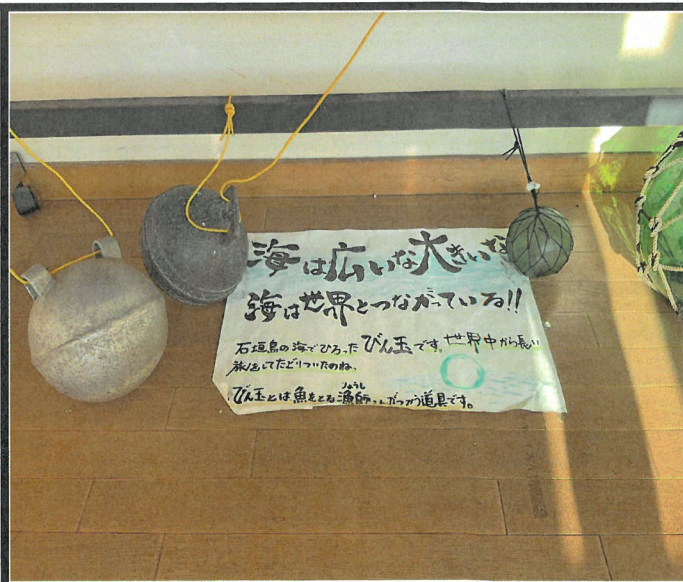 海は広いな大きいな
海は世界とつながっている!!
石垣島の海でひろったびん玉です。世界中から長い
旅をしてたどりついたのね。
びん玉とは魚をとる漁師さんがつかう道具です。
りょうし